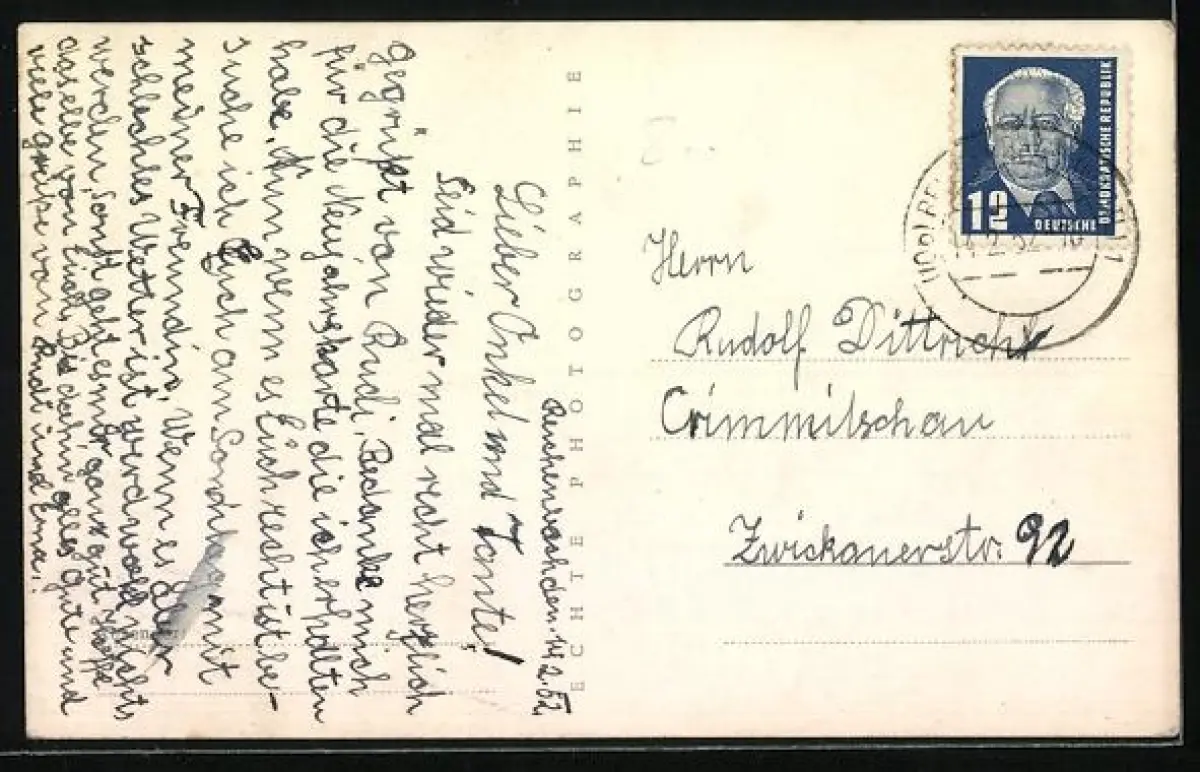 Reichenbach den. 14.2.52.
Lieber Onkel und Tante!
Seid wieder mal recht herzlich
gegrüßt von Rudi. Bedanke mich
für die Neujahrskarte die ich erhalten
habe. Nun wenn es Euch recht ist be-
suche ich Euch am Sonntag mit
meiner Freundin. Wenn es aber
schlechtes Wetter ist wird wohl nichts
werden, sonst geht es mir ganz gut hoffe
dasselbe von Euch. Bis dahin alles gute und
viele grüße von Rudi und Erna.
ECHTE PHOTOGRAPHIE
12
DEUTSCHE
DEMOKRATISCHE REPUBLIK
14.2.52
Herrn
Rudolf Dittrich
Crimmitschau
Zwickauerstr. 92